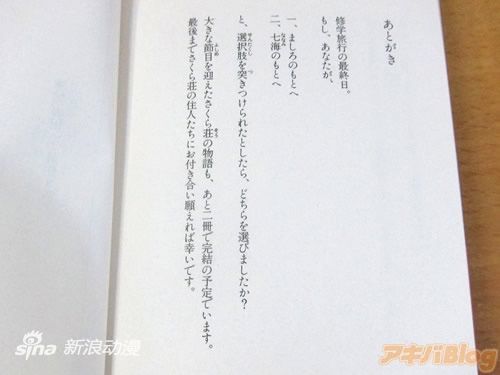 あとがき
修学旅行の最終日。
もし、あなたが、
一、ましろのもとへ
二、七海のもとへ
と、選択肢を突きつけられたとしたら、どちらを選びましたか?
大きな節目を迎えたさくら荘の物語も、あと二冊で完結の予定でいます。
最後までさくら荘の住人たちにお付き合い願えれば幸いです。
sina 新浪动漫
アキバBlog